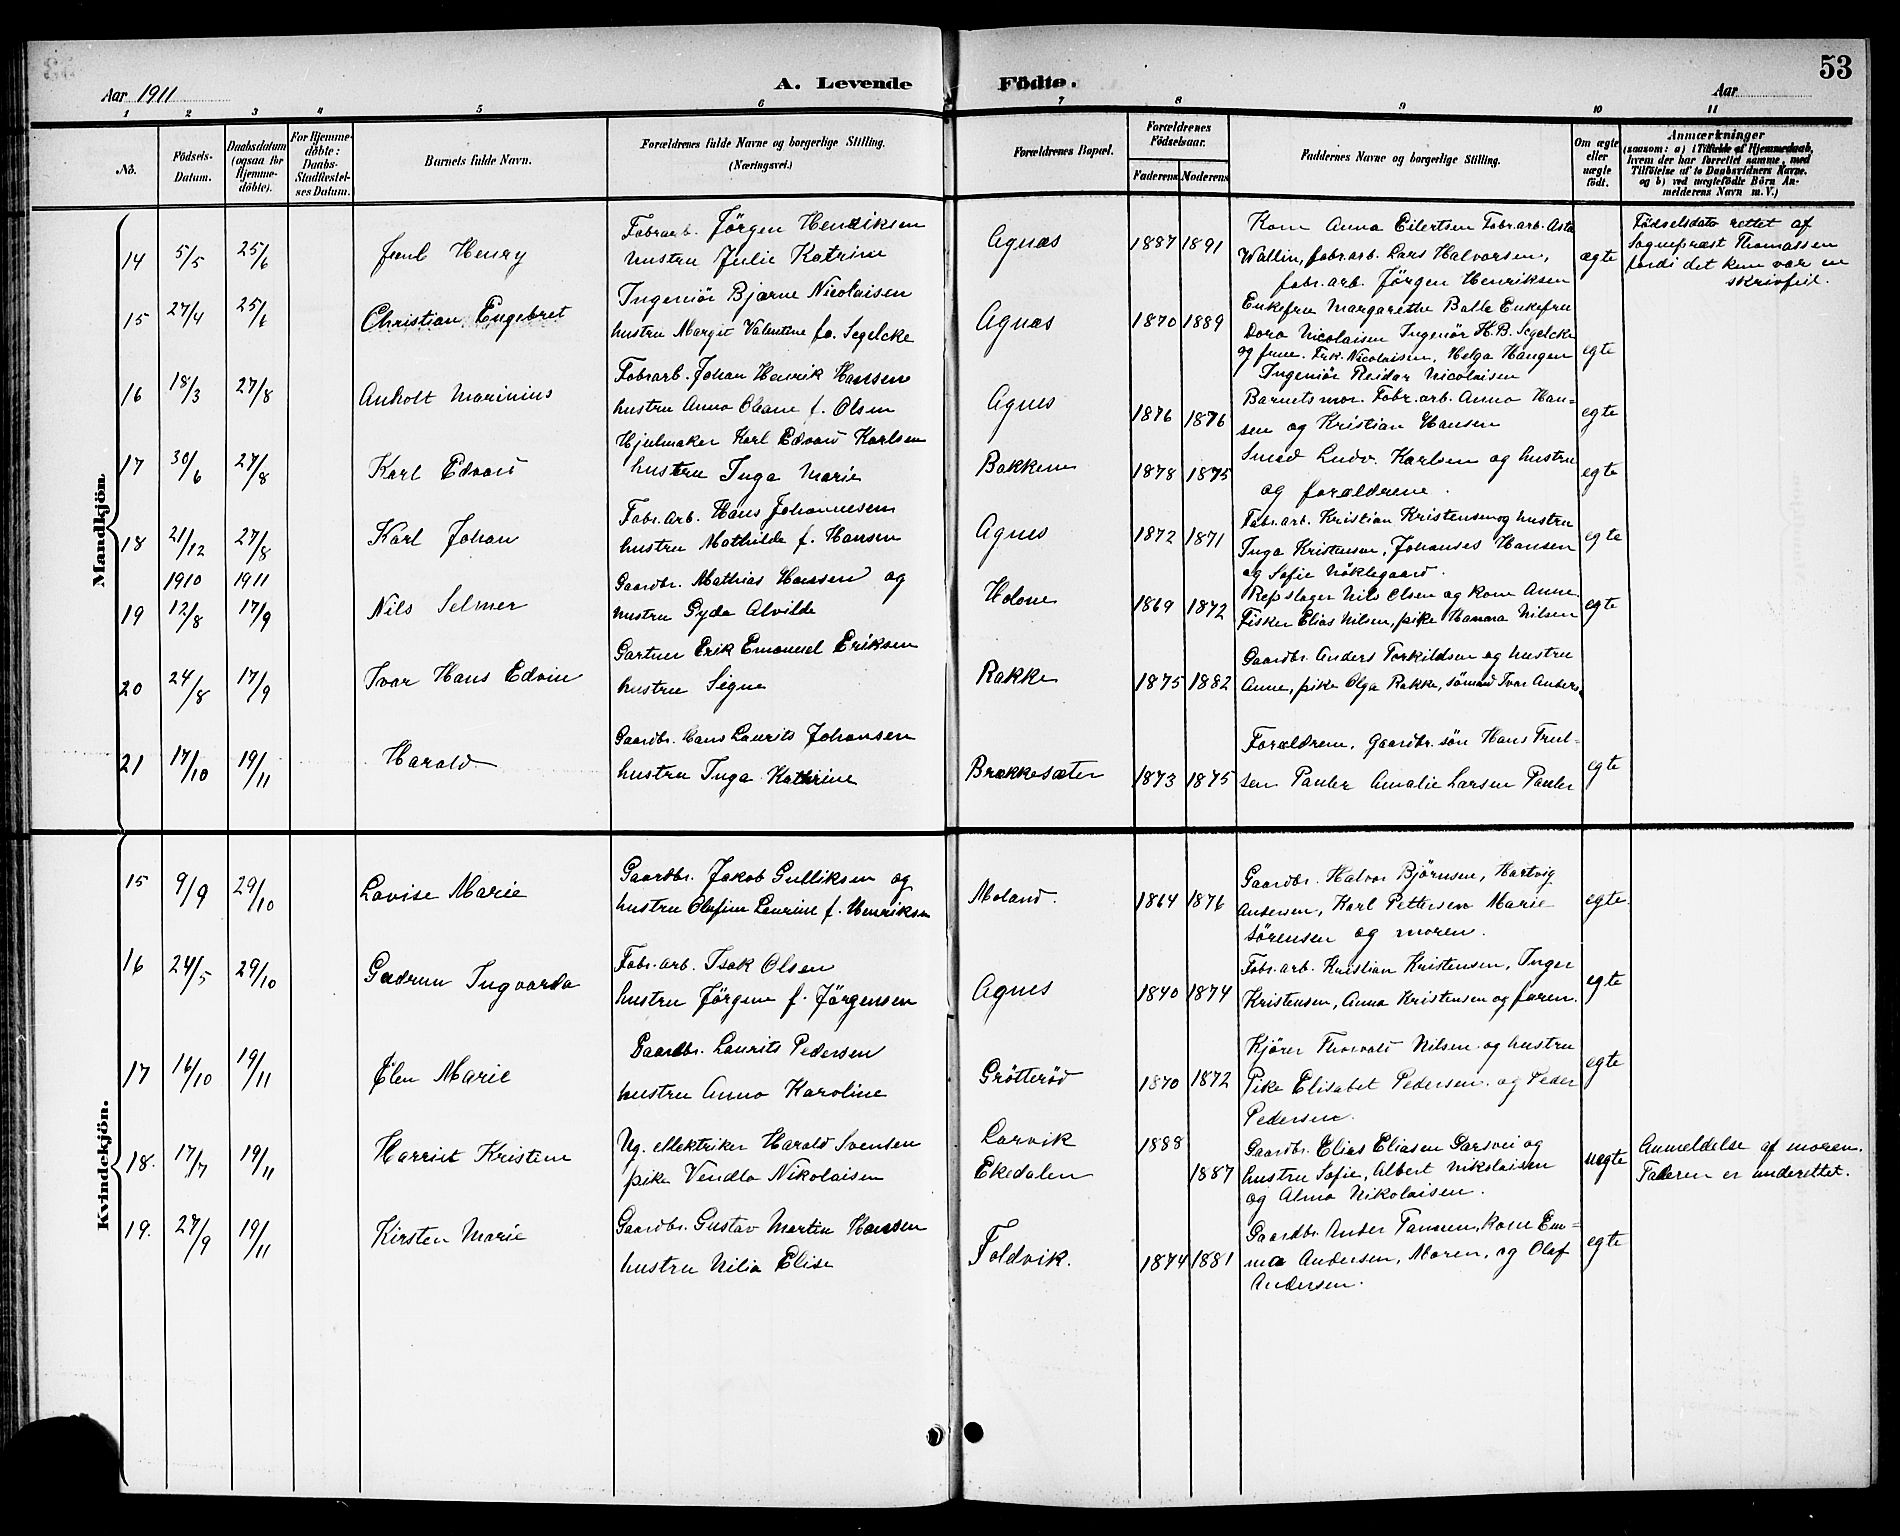 53
Aar 1911
A. Levende Födte.
Aar
1 2 3 4 5 6 7 8 9 10 11
No.
Födsels-Datum.
Daabsdatum (ogsaa for Hjemmedöbte).
For Hjemmedöbte: Daabs-Stadfæstelses Datum.
Barnets fulde Navn.
Forældrenes fulde Navne og borgerlige Stilling. (Næringsvei.)
Forældrenes Bopæl.
Forældrenes Födselsaar.
Faderens Moderens
Faddernes Navne og borgerlige Stilling.
Om ægte eller uægte födt.
Anmærkninger
(saasom: a) i Tilfælde af Hjemmedaab, hvem der har forrettet samme, med Tilföielse af to Daabsvidners Navne, og b) ved uægtefödte Börn Anmelderens Navn m. V.)
Mandkjön.
14 5/5 25/6 Henry
Fabrarb. Jørgen Henriksen
hustru Julie Katrine
Agnes 1887 1891
Kone Anna Eilertsen Fabr.arb. Asta
Wallin, fabr.arb. Lars Halvorsen,
fabr.arb. Jørgen Henriksen
ægte
Födselsdato rettet af
Sognepræst Thomassen
fordi det kun var en
skrivfeil.
15 27/4 25/6 Christian Engebret
Ingeniör Bjarne Nicolaisen
hustru Margit Valentine fo. Segelcke
Agnes 1870 1889
Enkefru Margarethe Balle Enkefru
Dora Nicolaisen Ingeniør H.B. Segelcke
og frue. Frk. Nicolaisen, Helga Haugen
Ingeniør Reidar Nicolaisen
egte
16 18/3 27/8 Anholt Marinius
Fabrarb. Johan Henrik Hansen
hustru Anna Oleane f. Olsen
Agnes 1876 1876
Barnets mor. Fabr.arb. Anna Han-
sen og Kristian Hansen
egte
17 30/6 27/8 Karl Edvard
Hjulmaker Karl Edvard Karlsen
hustru Inga Marie
Bakkene 1878 1875
Smed Ludv. Karlsen og hustru
og forældrene.
egte
18 21/12 1910 27/8 1911 Karl Johan
Fabr.arb. Hans Johannesen
hustru Mathilde f. Hansen
Agnes 1872 1871
Fabr.arb. Kristian Kristensen og hustru
Inga Kristensen, Johannes Hansen
og Sofie Nöklegaard.
egte
19 12/8 17/9 Nils Selmer
Gaardbr. Mathias Hansen og
hustru Gyda Alvilde
Holone 1869 1872
Repslager Nils Olsen og kone Anne
Fisker Elias Nilsen, pike Hanna Nilsen
egte
20 24/8 17/9 Ivar Hans Edvin
Gartner Erik Emanuel Eriksen
hustru Signe
Rakke 1875 1882
Gaardbr. Anders Torkildsen og hustru
Anne, pike Olga Rakke, sömand Ivar Anders.
21 17/10 19/11 Harald
Gaardbr. Hans Laurits Johansen
hustru Inga Kathrine
Brekkesæter 1873 1875
Forældrene, Gaardbr. sön Hans Trul-
sen Pauler Amalie Larsen Pauler
egte
Kvindekjön.
15 9/9 29/10 Lovise Marie
Gaardbr. Jakob Gulliksen og
hustru Olufine Laurine f. Henriksen
Moland. 1864 1876
Gaardbr. Halvor Björnsen, Hartvig
Andersen, Karl Pettersen Marie
Sörensen og moren.
egte.
16 24/5 29/10 Gudrun Ingvarda
Fabr.arb. Isak Olsen
hustru Jørgine f. Jørgensen
Agnes 1840 1874
Fabr.arb. Kristian Kristensen, Inger
Kristensen, Anna Kristensen og faren.
egte
17 16/10 19/11 Elen Marie
Gaardbr. Laurits Pedersen
hustru Anna Karoline
Grötteröd 1870 1872
Kjörer Thorvald Nilsen og hustru
Pike Elisabet Pedersen og Peder
Pedersen.
egte
18. 17/7 19/11 Harriet Kristine
Ug. ellektriker Harald Svensen
pike Vendla Nikolaisen
Larvik 1888
Ekedalen 1887
Gaardbr. Elias Eliasen Garsvei og
hustru Sofie, Albert Nikolaisen
og Alma Nikolaisen.
uegte
Anmeldelse af moren.
Faderen er underettet.
19. 27/9 19/11 Kirsten Marie
Gaardbr. Gustav Martin Hansen
hustru Nilia Elise
Foldvik. 1874 1881
Gaardbr. Ander Tanum, kone Em-
ma Andersen, Moren, og Olaf
Andersen.
egte